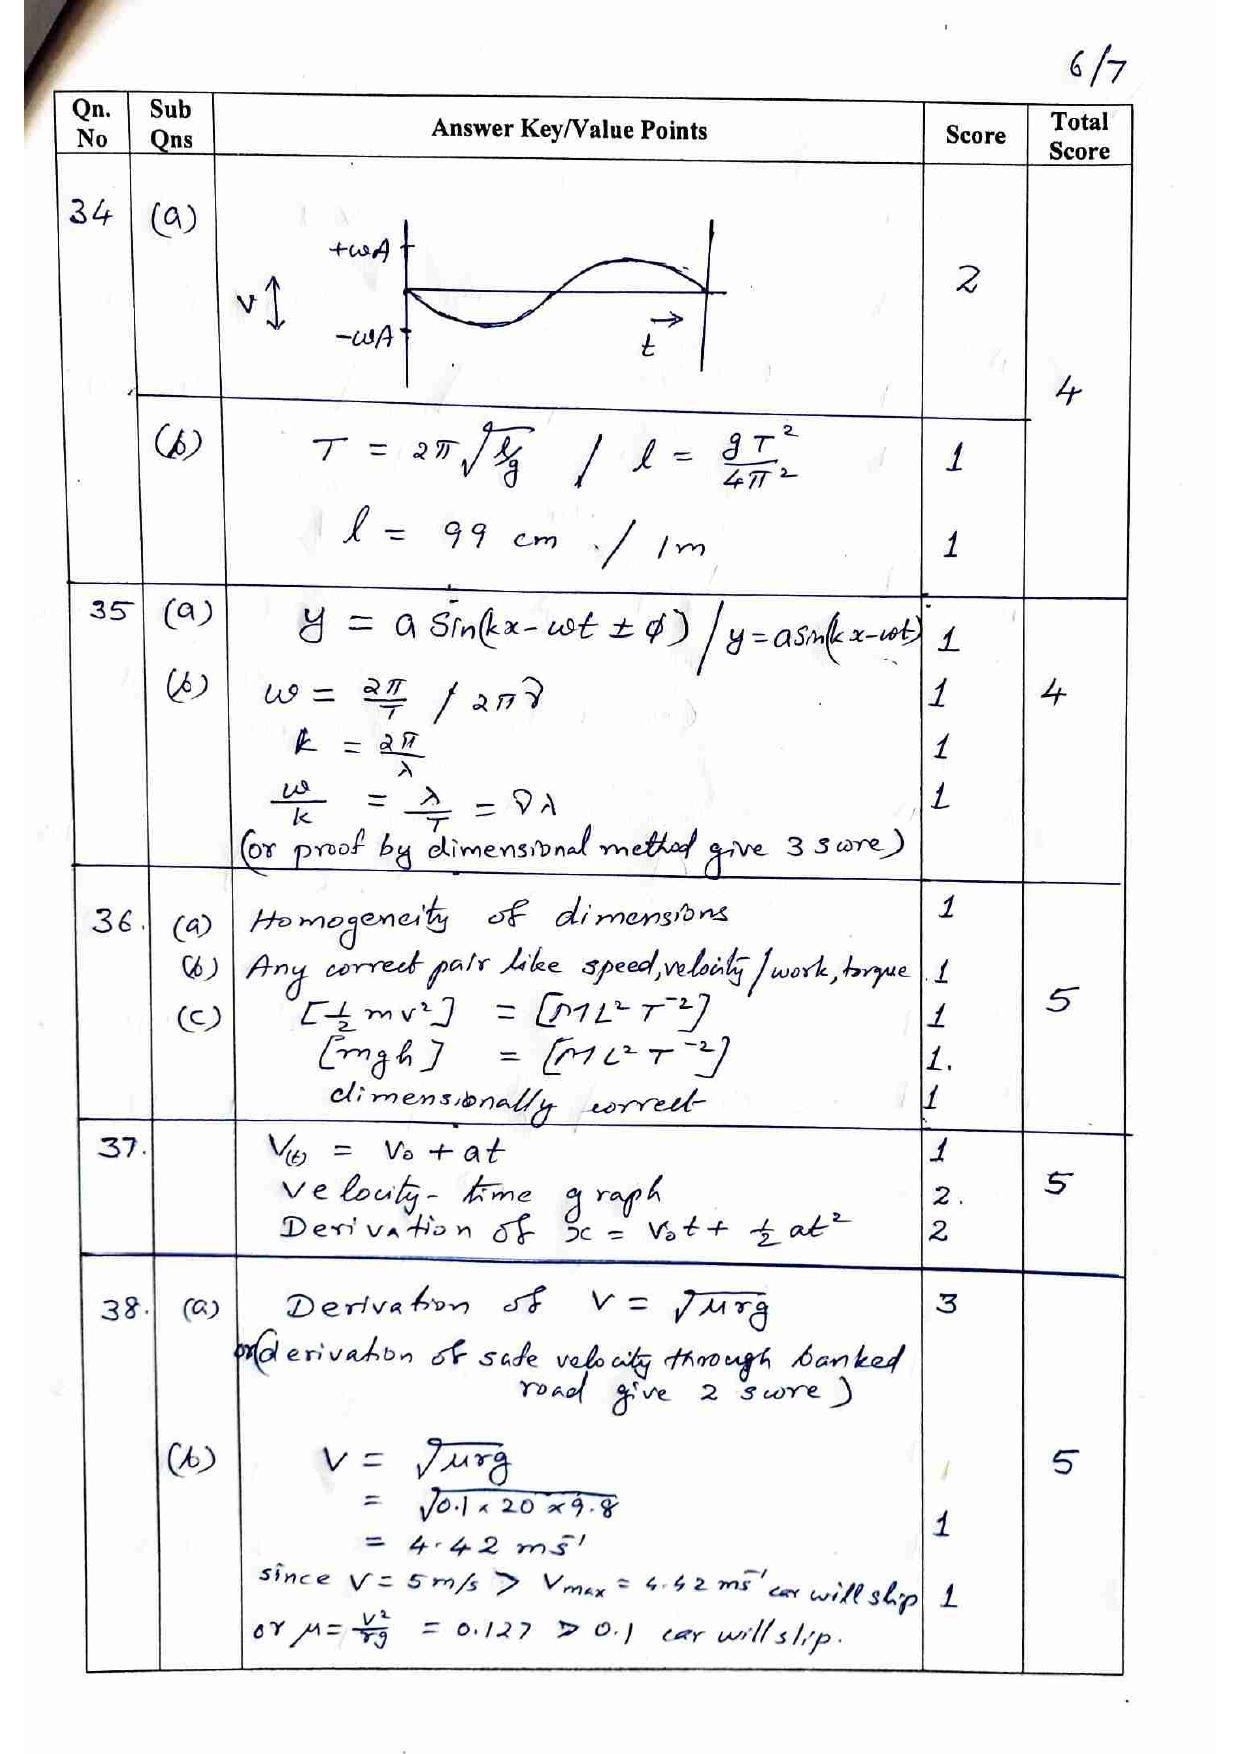 6/7
Qn. No Sub Qns Answer Key/Value Points Score Total Score
34 (a) +ωA
v ↕ 2
-ωA → t
4
(b) T = 2π√l/g / l = gT²/4π² 1
l = 99 cm / 1m 1
35 (a) y = a sin(kx - ωt ± φ) / y = a sin(kx-ωt) 1
(b) ω = 2π/T / 2πν 1 4
k = 2π/λ 1
ω/k = λ/T = νλ 1
(or proof by dimensional method give 3 score)
36. (a) Homogeneity of dimensions 1
(b) Any correct pair like speed, velocity / work, torque 1
(c) [½ mv²] = [ML²T⁻²] 1 5
[mgh] = [ML²T⁻²] 1.
dimensionally correct 1
37. V(t) = V₀ + at 1
velocity - time graph 2. 5
Derivation of x = V₀t + ½ at² 2
38. (a) Derivation of V = √μrg 3
or (derivation of safe velocity through banked
road give 2 score)
(b) V = √μrg 5
= √0.1 × 20 × 9.8
= 4.42 ms⁻¹ 1
since V = 5 m/s > Vmax = 4.42 ms⁻¹ car will slip 1
or μ = V²/rg = 0.127 > 0.1 car will slip.